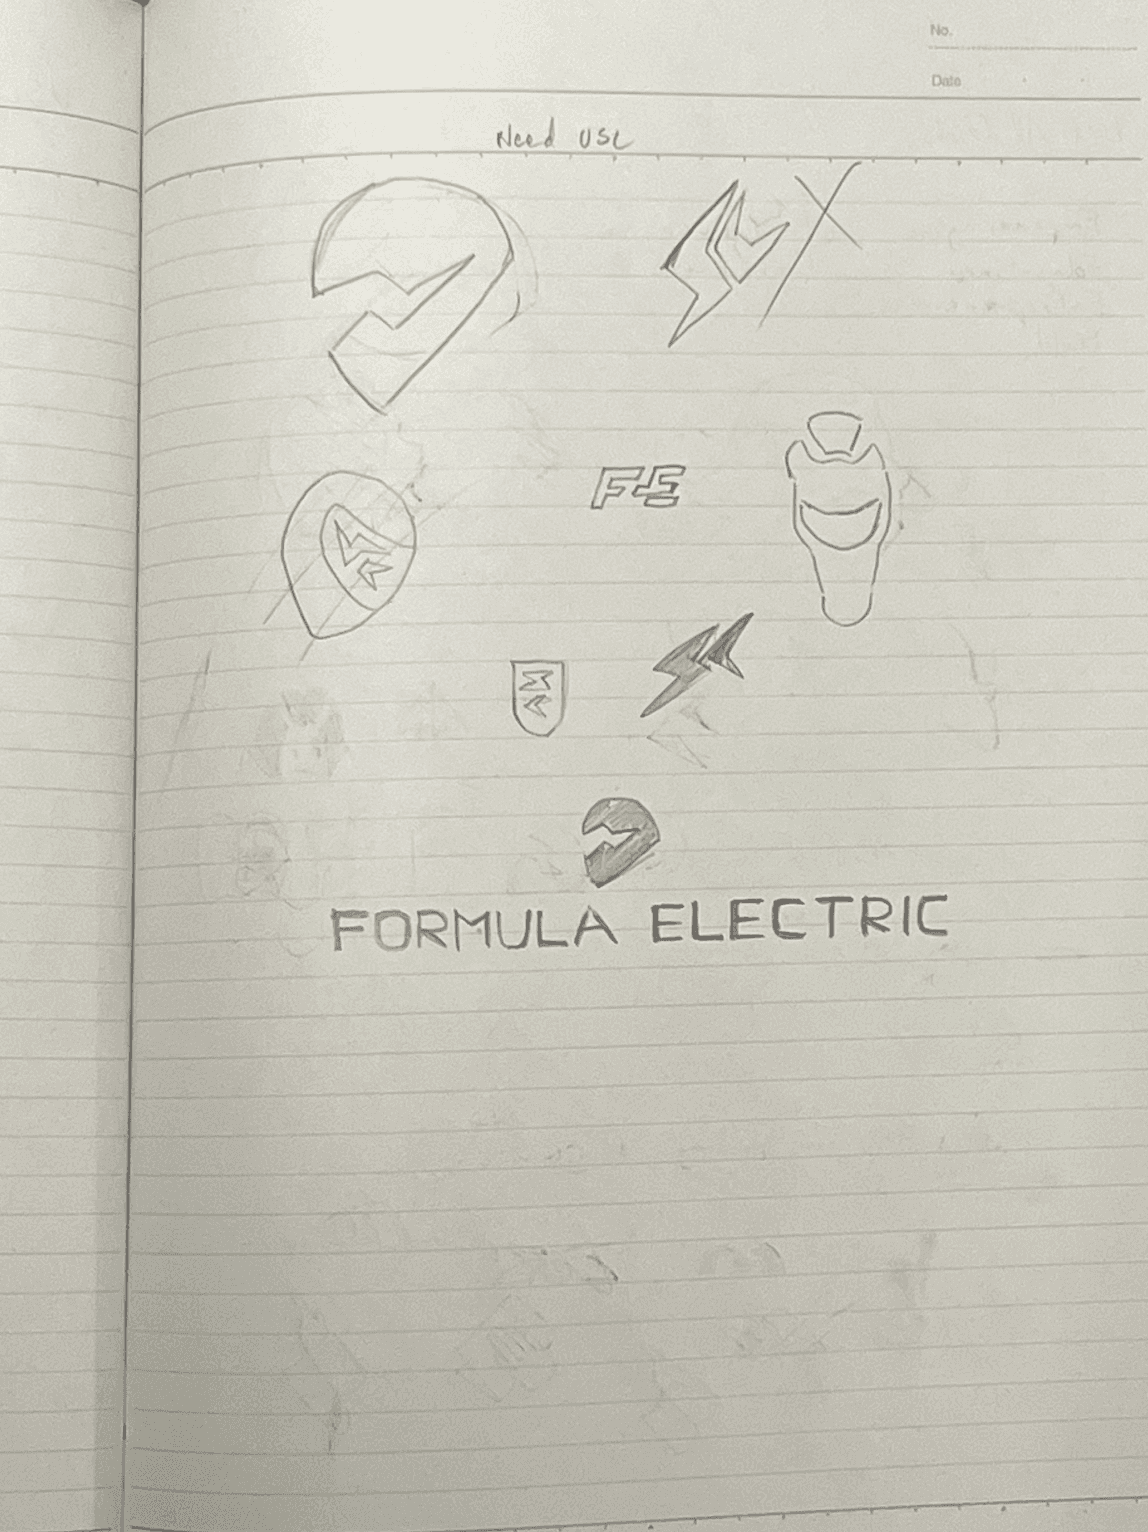 No.
Date
Need USC
FE
FORMULA ELECTRIC